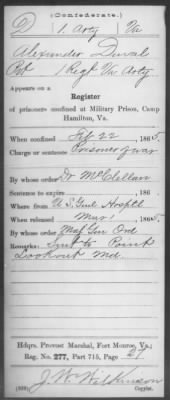 (Confederate.)
D 1 Arty Va
Alexander Duval
Pvt 1 Regt Va Arty
Appears on a
Register
of prisoners confined at Military Prison, Camp
Hamilton, Va.
When confined Feb 22, 1865
Charge or sentence Prisoner of war
By whose order Dr McClellan
Sentence to expire , 186 .
Where from U S Genl Hosptl
When released Mar 1 1865
By whose order Maj Gen Ord
Remarks: Sent to Point
Lookout Md.
Hdqrs. Provost Marshal, Fort Monroe, Va.;
Reg. No. 277, Part 715, Page 27
J. W. Wilkinson
Copyist.